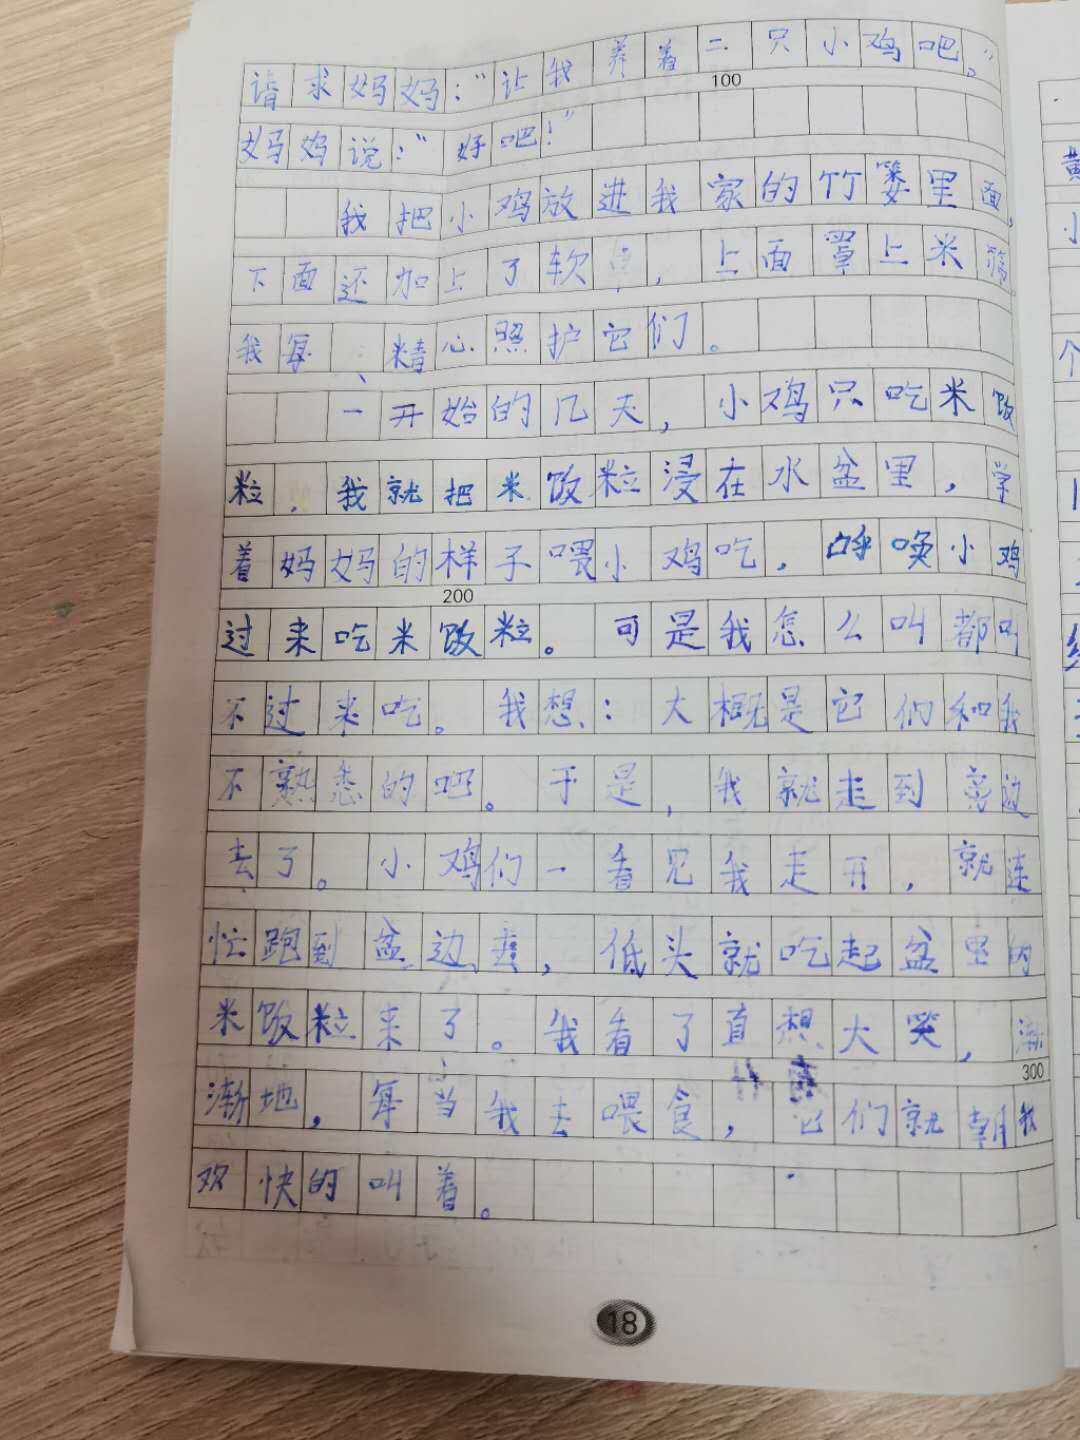 请求妈妈：“让我养着二只小鸡吧。”
100
妈妈说：“好吧！”
我把小鸡放进我家的竹篓里面，
下面还加上了软，上面罩上米筛。
我每精心照护它们。
一开始的几天，小鸡只吃米饭
粒，我就把米饭粒浸在水盆里，学
着妈妈的样子喂小鸡吃，呼唤小鸡
200
过来吃米饭粒。可是我怎么叫都叫
不过来吃。我想：大概是它们和我
不熟悉的吧。于是，我就走到旁边
去了。小鸡们一看见我走开，就连
忙跑到盆边，低头就吃起盆里的
米饭粒来了。我看了直想大笑，渐
300
渐地，每当我去喂食，它们就朝我
欢快的叫着。
18